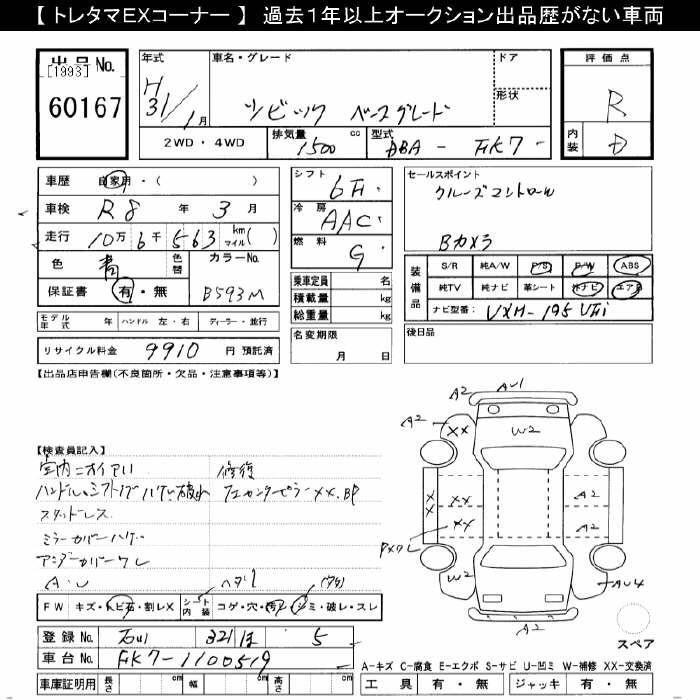 【 トレタマEXコーナー 】 過去1年以上オークション出品歴がない車両
出品 No.
[1993]
60167
年式
H
31/1月
車名・グレード
シビック ベースグレード
ドア
形状
2WD・4WD
排気量
1500 cc
型式
DBA - FK7 -
評価点
R
内装
D
車歴 自家用・( )
車検 R8 年 3 月
走行 10万 6千 563 km マイル ( )
色 青 色替 カラーNo.
保証書 有・無 B593M
シフト 6F
冷房 AAC
燃料 G
乗車定員 名
積載量 kg
総重量 kg
セールスポイント
クルーズコントロール
Bカメラ
装備品
S/R 純A/W P/S P/W ABS
純TV 純ナビ 革シート 社外ナビ エアB
ナビ型番: VXM-195VFi
モデル年式 年 ハンドル 左・右 ディーラー・並行
リサイクル料金 9910 円 預託済
名変期限
月 日
後日品
【出品店申告欄(不良箇所・欠品・注意事項等)】
【検査員記入】
室内ニオイアリ 修復
スタッドレス
ミラーカバーハゲ
アンダーカバーワレ
A・U ヘタリ
FW キズ・トビ石・割レX シート内装 コゲ・穴・汚レ・シミ・破レ・スレ
登録 No. 321 ほ 5
車台 No. FK7-1100519
車庫証明用 長さ cm 幅 cm 高さ cm
AU1
A2
A2
XX
W2
A2
X
X
XX
A2
XX
A2
W2
AU4
A2
スペア
A-キズ C-腐食 E-エクボ S-サビ U-凹ミ W-補修 XX-交換済
工具 有・無 ジャッキ 有・無